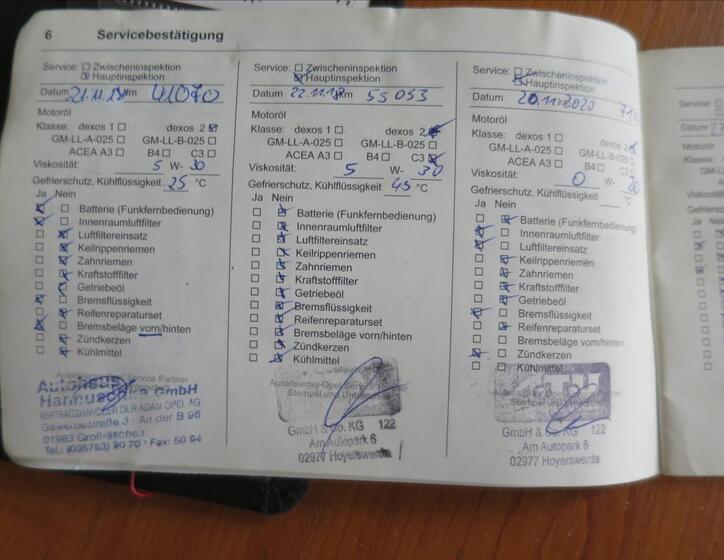 6 Servicebestätigung
Service: Zwischeninspektion
Hauptinspektion
Datum 21.11. km 41070
Motoröl
Klasse: dexos 1 dexos 2
GM-LL-A-025 GM-LL-B-025
ACEA A3 B4 C3
Viskosität: 5 W- 30
Gefrierschutz, Kühlflüssigkeit 25 °C
Ja Nein
Batterie (Funkfernbedienung)
Innenraumluftfilter
Luftfiltereinsatz
Keilrippenriemen
Zahnriemen
Kraftstofffilter
Getriebeöl
Bremsflüssigkeit
Reifenreparaturset
Bremsbeläge vorn/hinten
Zündkerzen
Kühlmittel
Service Partner
Autohaus
GmbH
VERTRAGSHÄNDLER DER ADAM OPEL AG
Gewerbestraße 3 · An der B 96
01983 Großräschen
Service: Zwischeninspektion
Hauptinspektion
Datum 22.11.18 km 55033
Motoröl
Klasse: dexos 1 dexos 2
GM-LL-A-025 GM-LL-B-025
ACEA A3 B4 C3
Viskosität: 5 W- 30
Gefrierschutz, Kühlflüssigkeit 45 °C
Ja Nein
Batterie (Funkfernbedienung)
Innenraumluftfilter
Luftfiltereinsatz
Keilrippenriemen
Zahnriemen
Kraftstofffilter
Getriebeöl
Bremsflüssigkeit
Reifenreparaturset
Bremsbeläge vorn/hinten
Zündkerzen
Kühlmittel
Autorisierter Opel
Stempel und
GmbH & Co. KG 122
Am Autopark 6
02977 Hoyerswerda
Service: Zwischeninspektion
Hauptinspektion
Datum 20.11 2020
Motoröl
Klasse: dexos 1 dexos 2
GM-LL-A-025 GM-LL-B-025
ACEA A3 B4 C3
Viskosität: 0 W-
Gefrierschutz, Kühlflüssigkeit °C
Ja Nein
Batterie (Funkfernbedienung)
Innenraumluftfilter
Luftfiltereinsatz
Keilrippenriemen
Zahnriemen
Kraftstofffilter
Getriebeöl
Bremsflüssigkeit
Reifenreparaturset
Bremsbeläge vorn/hinten
Zündkerzen
Kühlmittel
GmbH & Co. KG 122
Am Autopark 6
02977 Hoyerswerda